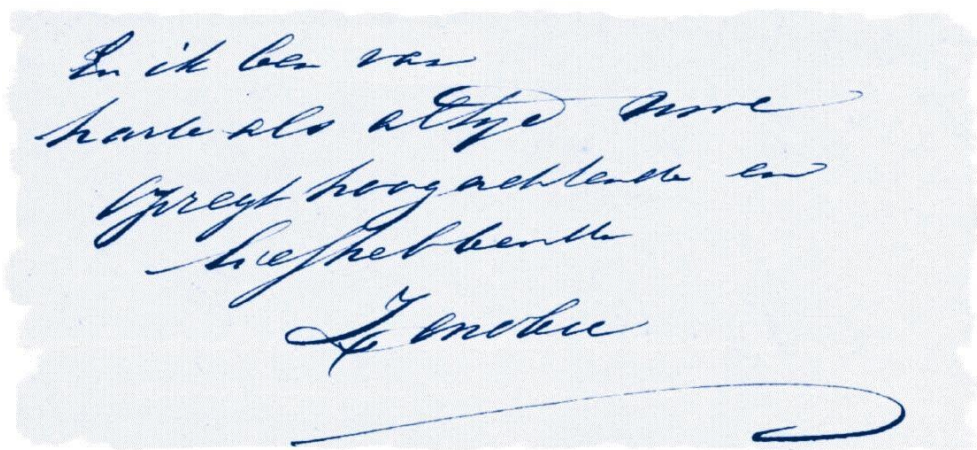 En ik ben van
harte als altyd uwe
opregt hoogachtende en
liefhebbende
Zenobie